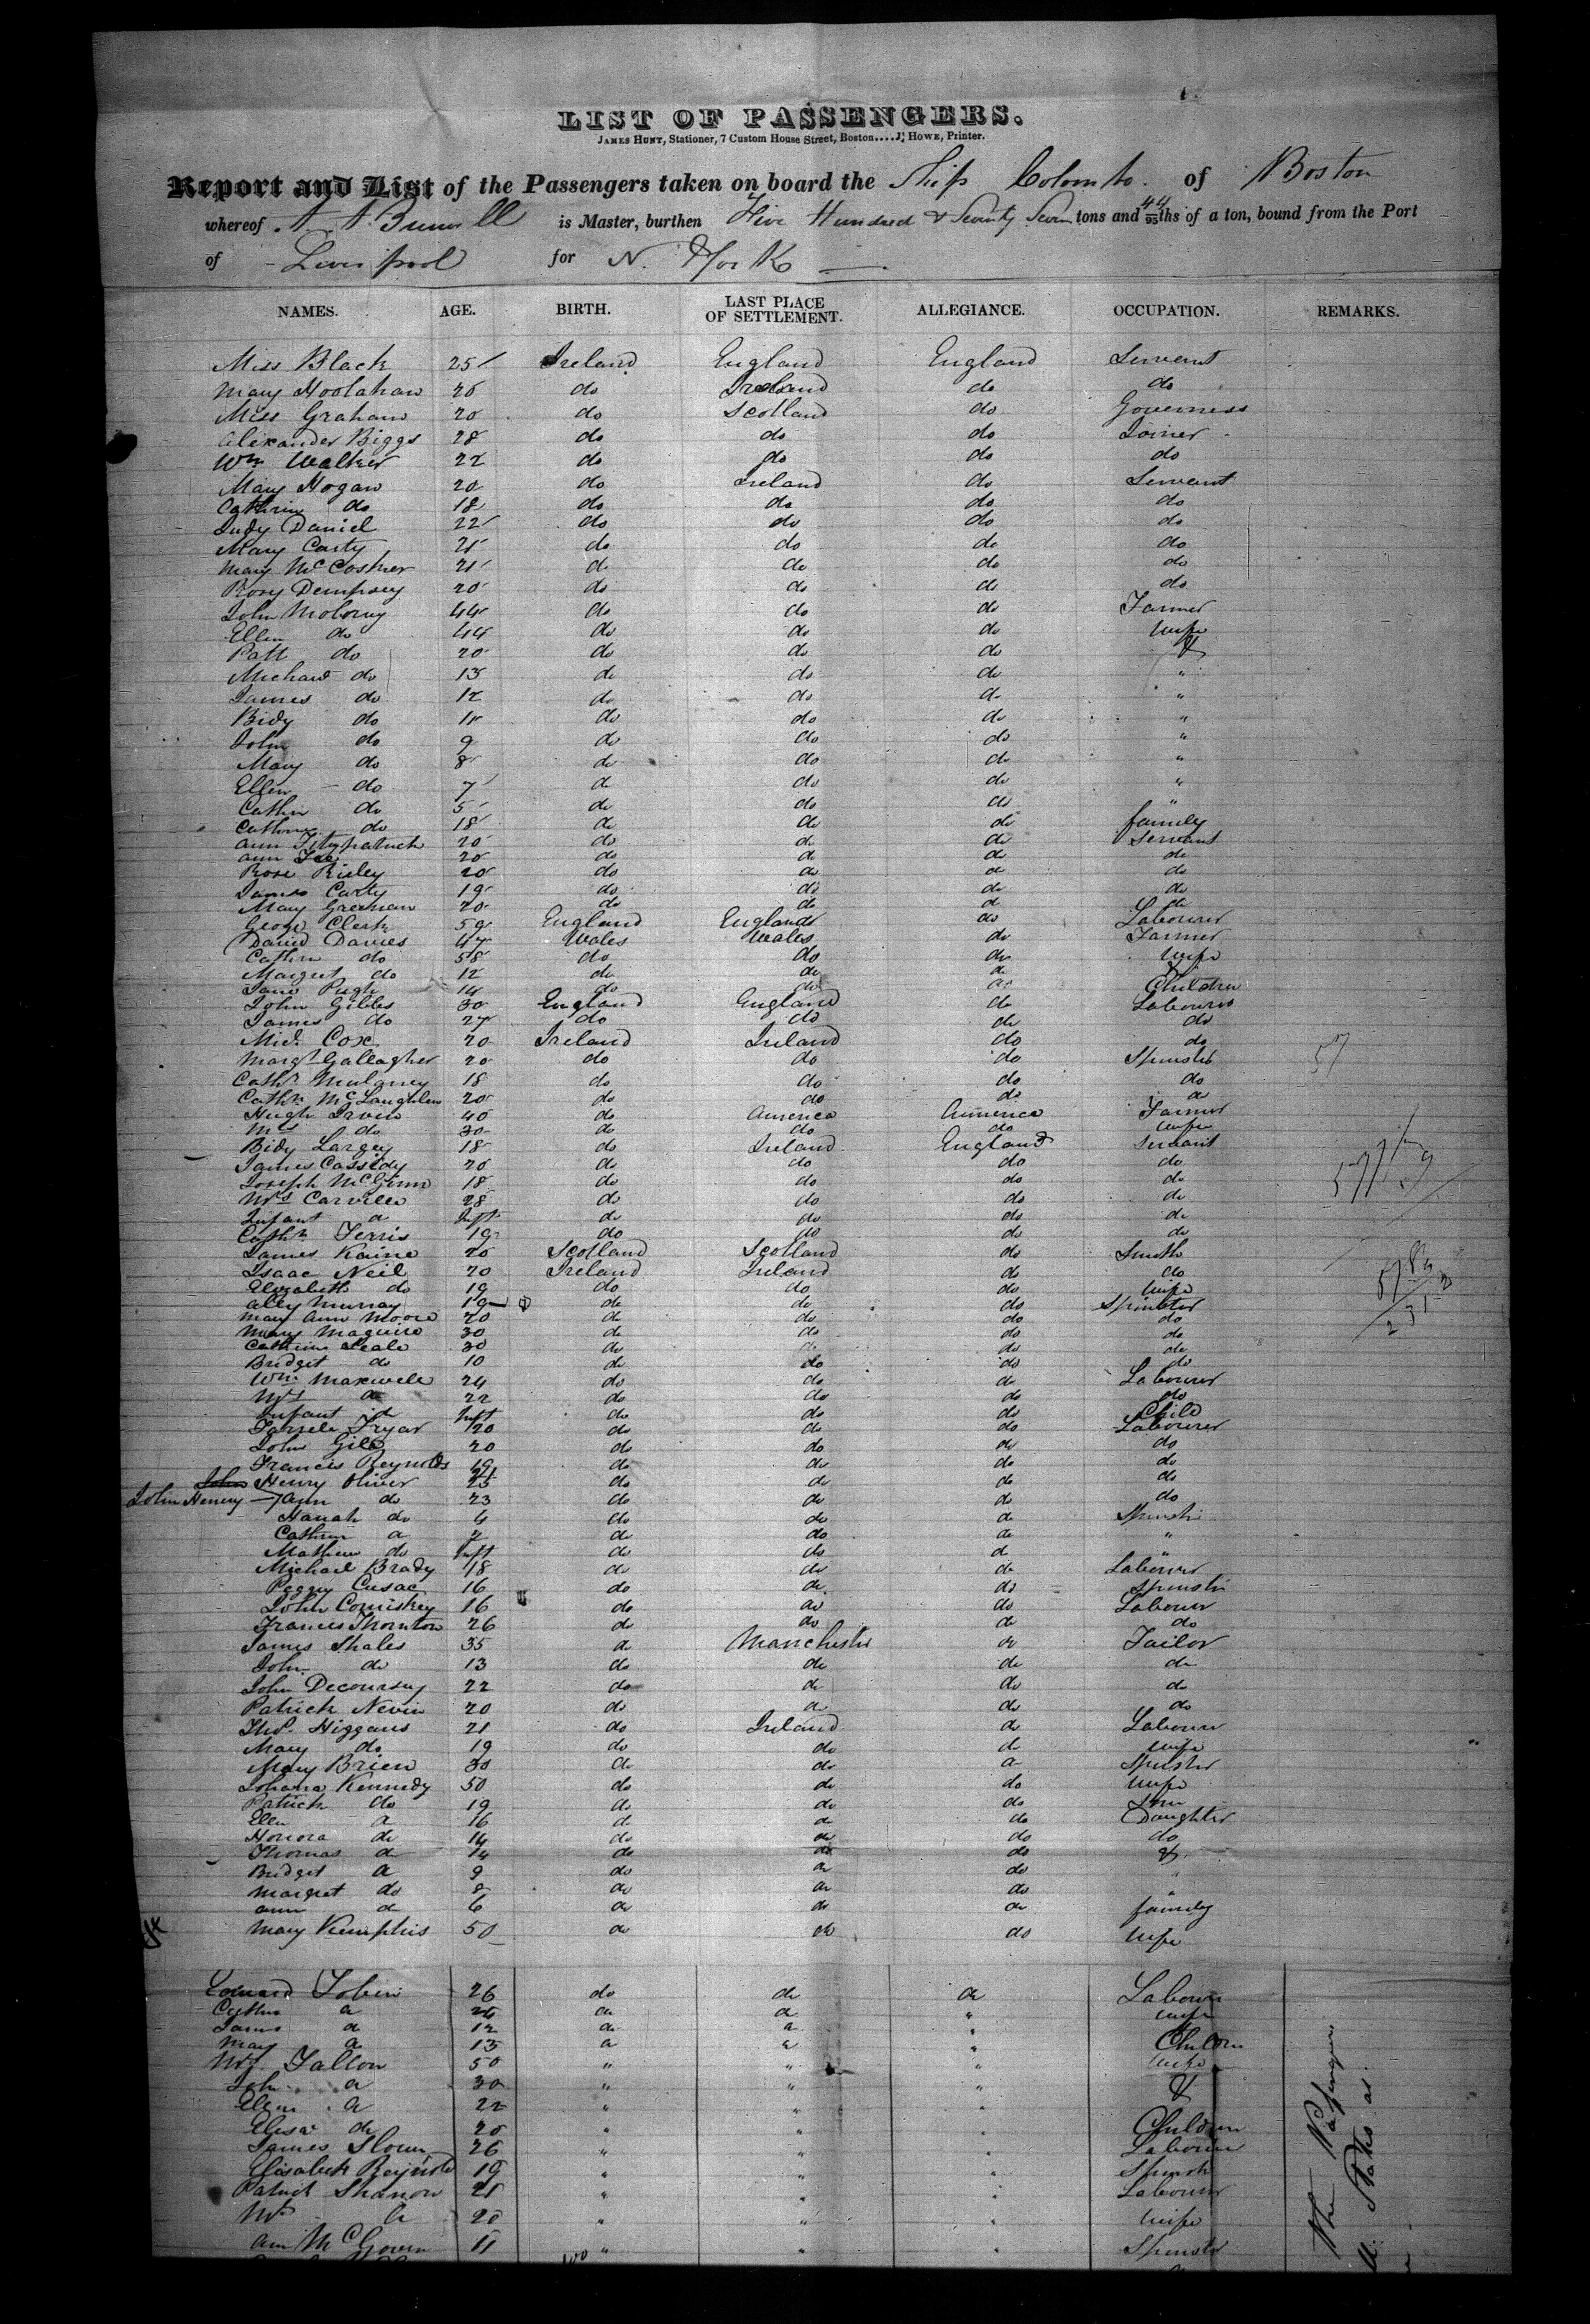 LIST OF PASSENGERS.
JAMES HUNT, Stationer, 7 Custom House Street, Boston....J. HOWE, Printer.
Report and List of the Passengers taken on board the Ship Colombo. of Boston
whereof is Master, burthen Five Hundred & Seventy Seven tons and 44/95ths of a ton, bound from the Port
of Liverpool for N. York
NAMES. AGE. BIRTH. LAST PLACE OF SETTLEMENT. ALLEGIANCE. OCCUPATION. REMARKS.
Miss Black 25 Ireland England England Servant
Mary Hoolahan 20 do Ireland do do
Miss Graham 20 do Scotland do Governess
Alexander Biggs 28 do do do Joiner
Wm Walker 22 do do do do
Mary Hogan 20 do Ireland do Servant
Cathrin do 18 do do do do
Judy Daniel 22 do do do do
Mary Carty 21 do do do do
Mary McCosker 21 do do do do
Rosy Dempsey 20 do do do do
John Molony 44 do do do Farmer
Ellen do 44 do do do Wife
Patt do 20 do do do &
Michael do 13 do do do "
James do 12 do do do "
Bidy do 11 do do do "
John do 9 do do do "
Mary do 8 do do do "
Ellen do 7 do do do "
Cathn do 5 do do do "
Cathrin do 18 do do do family
Ann Fitzpatrick 20 do do do Servant
Ann Fee 20 do do do do
Rose Risley 20 do do do do
James Carty 19 do do do do
Mary Greenan 20 do do do do
George Clark 59 England England do Labourer
David Davies 47 Wales Wales do Farmer
Cathrin do 58 do do do Wife
Margret do 12 do do do &
Jane Pugh 14 do do do Children
John Gibbs 30 England England do Labourer
James do 27 do do do do
Mich. Cox 20 Ireland Ireland do do
Margt Gallagher 20 do do do Spinster
Cathn Mulaney 18 do do do do
Cathn McLaughlin 20 do do do do
Hugh Irvin 40 do America America Farmer
Mrs do 30 do do do Wife
Bidy Largey 18 do Ireland England Servant
James Cassidy 20 do do do do
Joseph McGinn 18 do do do do
Mrs Carville 28 do do do do
Infant do Inft do do do do
Cathn Ferris 19 do do do do
James Kaine 20 Scotland Scotland do Smith
Isaac Neil 20 Ireland Ireland do do
Elizabeth do 19 do do do Wife
Ally Murray 19 do do do Spinster
Mary Ann Moore 20 do do do do
Mary Maguire 30 do do do do
Cathrin Leale 30 do do do do
Bridget do 10 do do do do
Wm Maxwell 24 do do do Labourer
Mrs do 22 do do do do
Infant do Inft do do do Child
Farrele Fryar 20 do do do Labourer
John Gill 20 do do do do
Francis Reynolds 19 do do do do
John Henry Oliver 25 do do do do
John Henery Ann do 23 do do do do
Hanah do 4 do do do Spinster
Cathrin do 2 do do do "
Mathew do Inft do do do "
Michael Brady 18 do do do Labourer
Peggy Cusac 16 do do do Spinster
John Comiskey 16 do do do Labourer
Francis Thornton 26 do do do do
James Shales 35 do Manchester do Tailor
John do 13 do do do do
John Decoursey 22 do do do do
Patrick Nevin 20 do do do do
Thos. Higgans 21 do Ireland do Labourer
Mary do 19 do do do Wife
Mary Brien 30 do do do Spinster
Johana Kennedy 50 do do do Wife
Patrick do 19 do do do Son
Ellen do 16 do do do Daughter
Honora do 14 do do do do
Thomas do 14 do do do &
Bridget do 9 do do do
Margret do 8 do do do "
Ann do 6 do do do family
Mary Kemphis 50 do do do Wife
Edward Tobin 26 do do do Labourer
Cathn do 24 do do " Wife
James do 12 do do " &
Mary do 13 do do " Children
Mrs. Fallon 50 " " " Wife
John do 30 " " " &
Ellen do 22 " " "
Elisa do 20 " " " Children
James Slown 26 " " " Labourer
Elisabeth Reynolds 19 " " " Spinster
Patrick Shanon 21 " " " Labourer
Mrs do 20 " " " Wife
Ann McGovern 11 " " " Spinster
57
The Passengers